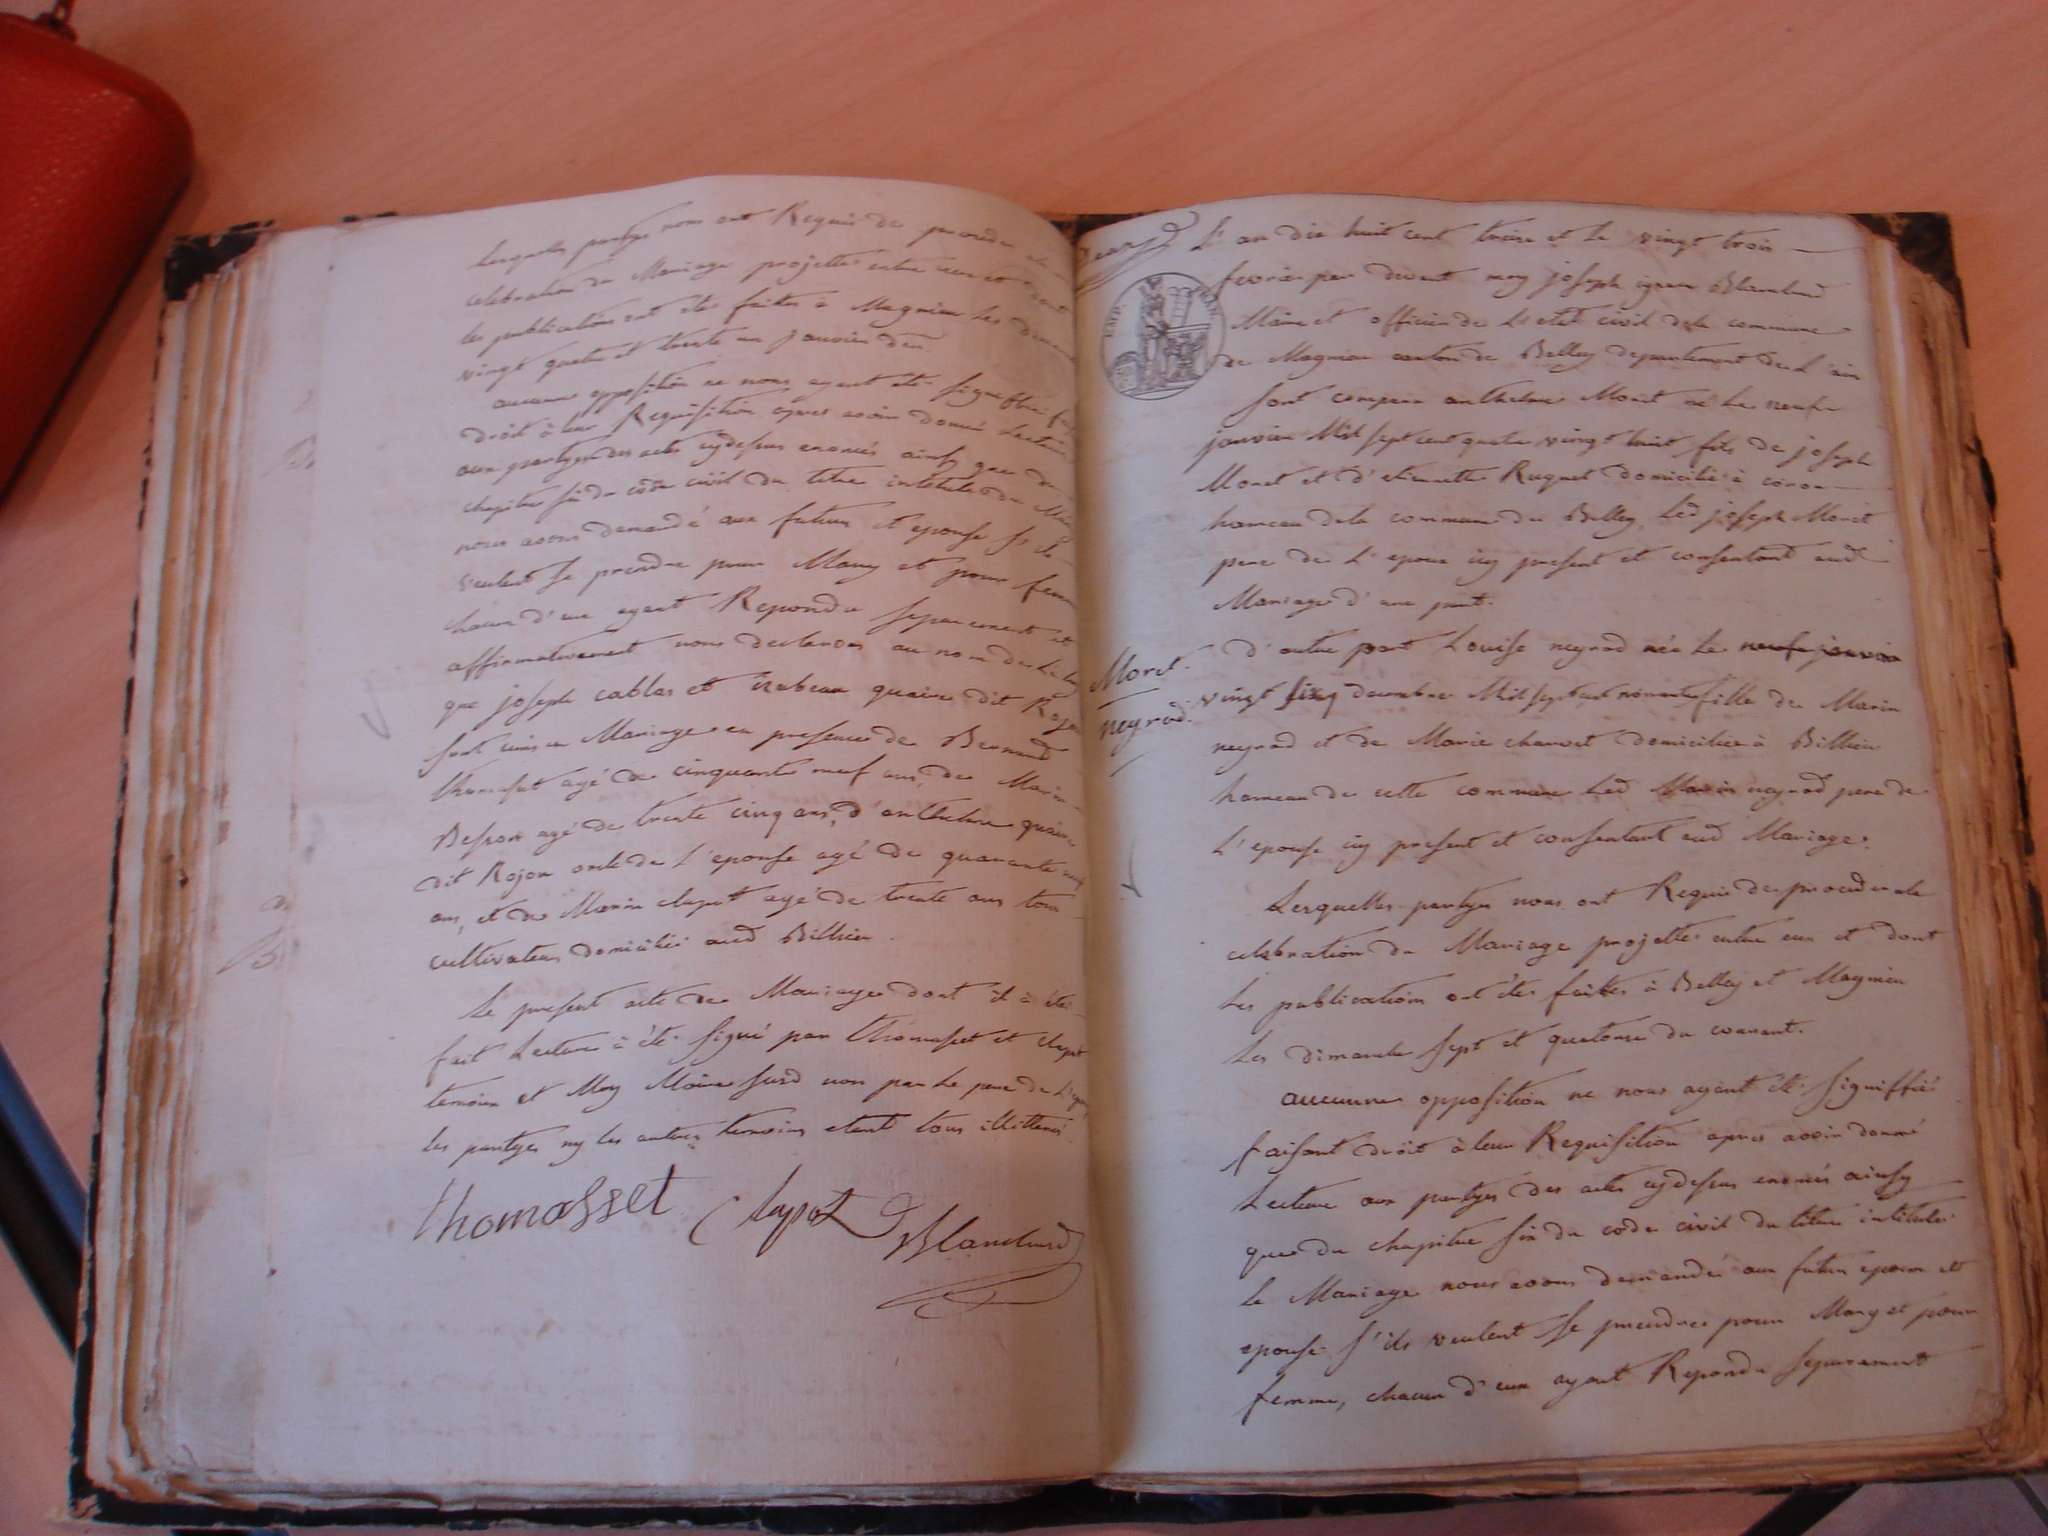 Lesquels partyes nous ont Requis de proceder a la
celebration du Mariage projetté entre eux et dont
les publications ont été faites à Magnieu les dimanche
vingt quatre et trente un janvier der.
aucunne opposition ne nous ayant été signiffiée fais
droit à leur Requisition apres avoir donné Lecture
aux partyes des actes cydessus enoncés ainsy que du
chapitre six du code civil du titre intitulé du Mariage
nous avons demandé aux futurs et epouse s'ils
veulent se prendre pour Mary et pour femme
chacun d'eux ayant Repondu separement et
affirmativement nous declarons au nom de la loy
que joseph cablas et izabeau quaine dit Rojon
sont unis en Mariage en presence de Bernard
thomasset agé de cinquante neuf ans, de Marin
Besson agé de trente cinq ans, d'anthelme quaine
dit Rojon oncle de L'epouse agé de quarante neuf
ans, et de Marin clapot agé de trente ans tous
cultivateurs domiciliés aud Billieu.
Le present acte de Mariage dont il a été
fait Lecture à été signé par thomasset et clapot
temoins et Moy Maire susd non par Le pere de L'epouse
les partyes ny les autres temoins etant tous illitterés
thomasset clapot Blanchard
L'an dix huit cent treize et Le vingt trois
fevrier par devant moy joseph ignace Blanchard
Maire et officier de L'etat civil de la commune
de Magnieu canton de Belley departement de L'ain
EMP.
Sont comparu anthelme Moret né Le neuf
janvier Mil sept cent quatre vingt huit fils de joseph
Moret et d'etiennette Ruquet domicilié à coron
hameau de la commune de Belley, Led joseph Moret
pere de L'epoux icy present et consentant aud
Mariage d'une part.
Moret
neyrod
d'autre part Louise neyrod née Le neuf janvier
vingt cinq decembre Mil sept cent nonante fille de Marin
neyrod et de Marie charvet domiciliée à Billieu
hameau de cette commune Led Marin neyrod pere de
L'epouse icy present et consentant aud Mariage.
Lesquelles partyes nous ont Requis de proceder a la
celebration du Mariage projetté entre eux et dont
Les publications ont été faites à Belley et Magnieu
Les dimanche sept et quatorze du courant.
aucunne opposition ne nous ayant été signiffiée
faisant droit à leur Requisition apres avoir donné
Lecture aux partyes des actes cydessus enoncés ainsy
que du chapitre six du code civil du titre intitulé
le Mariage nous avons demandé aux futur epoux et
epouse s'ils veulent se prendre pour Mary et pour
femme, chacun d'eux ayant Repondu separement